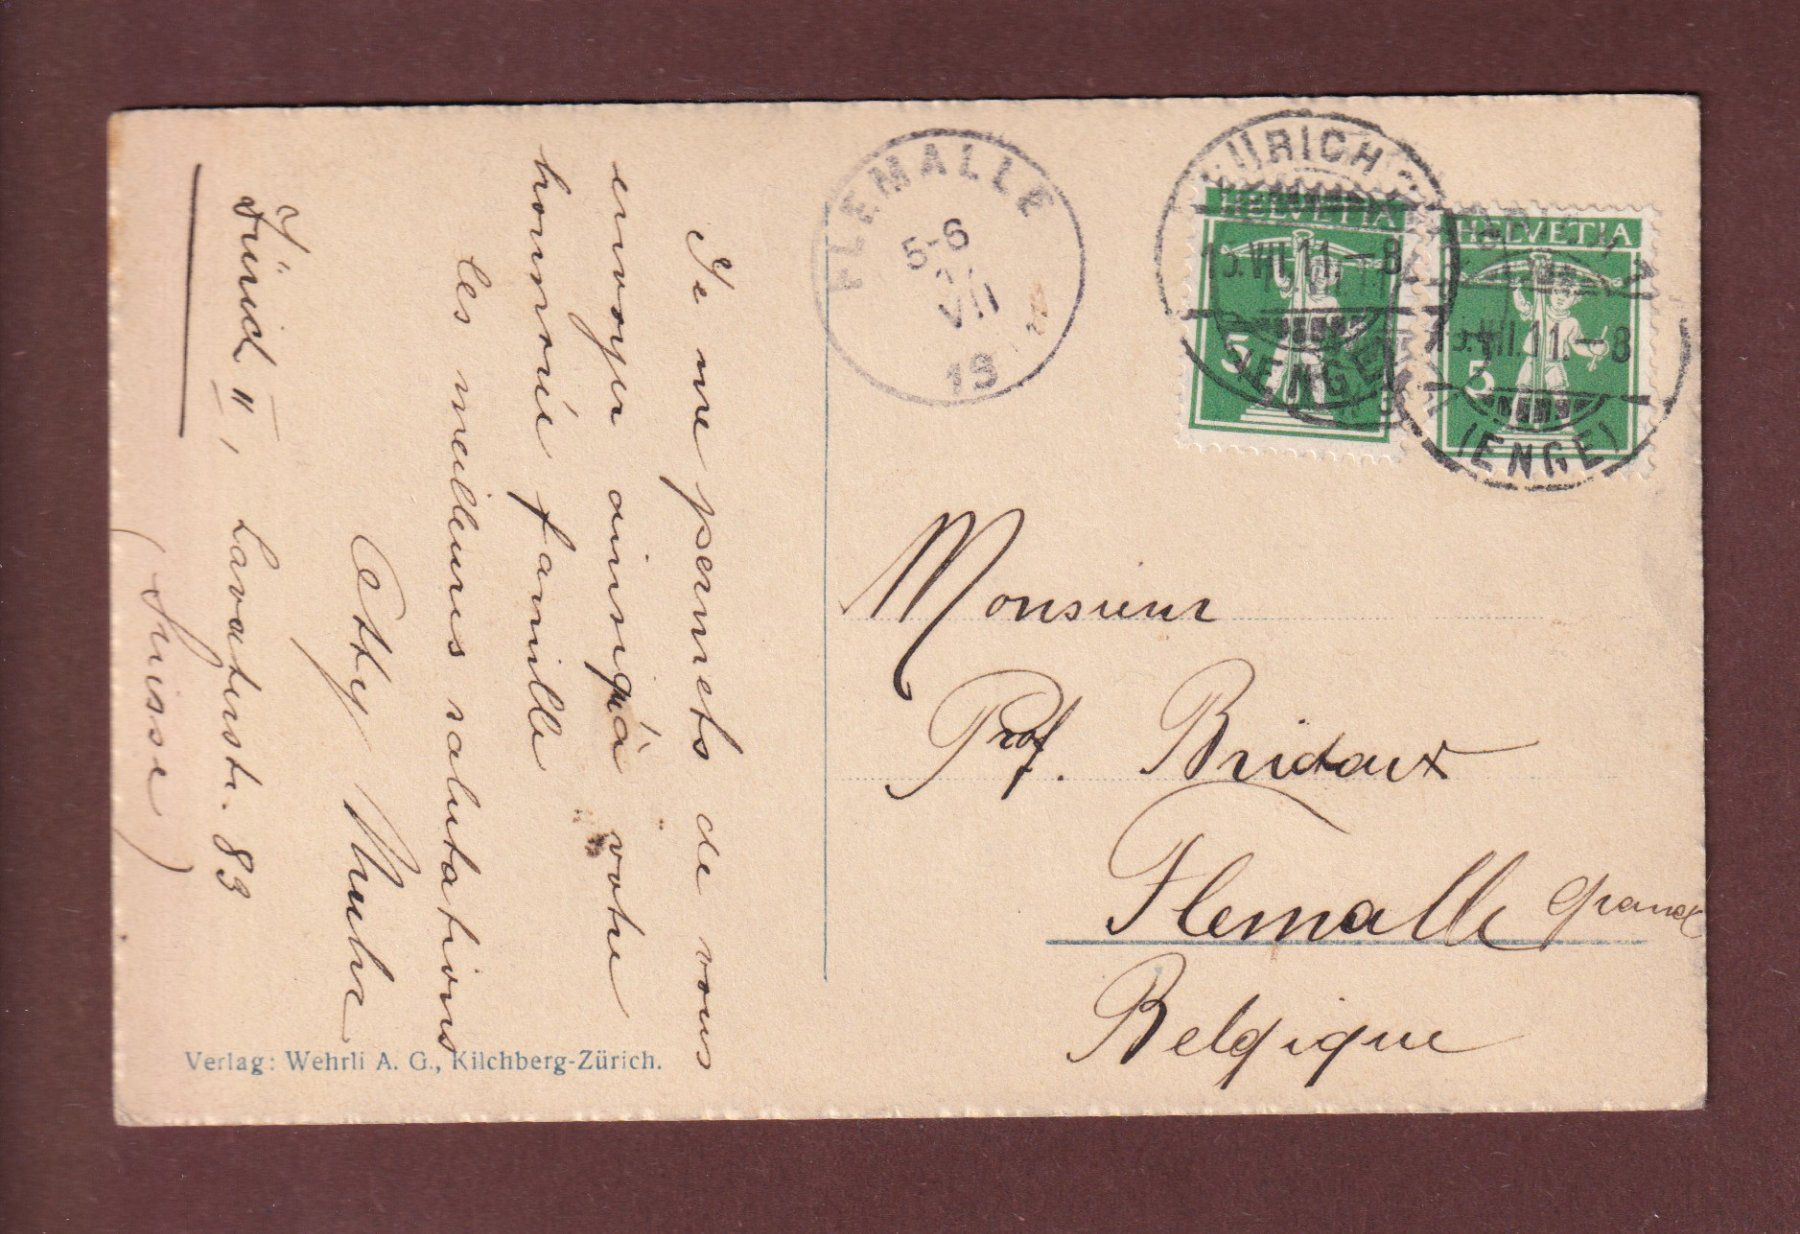 Je me permets de vous
envoyer ainsi qu'à votre
honorée famille
les meilleures salutations
Zürich II, Lavaterstr. 83
(Suisse)
Verlag: Wehrli A. G., Kilchberg-Zürich.
FLEMALLE
5-6
VII
19
ZÜRICH
HELVETIA
VII.11.–8
5
(ENGE)
HELVETIA
VII.11.–8
5
(ENGE)
Monsieur
Prof. Bridoux
Flemalle Grande
Belgique